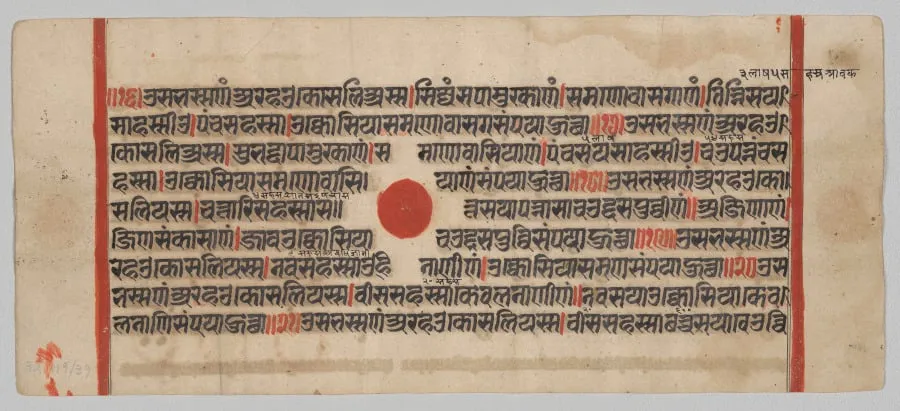 ३लाष५स हस्र श्रावक
॥१६॥उसभस्सणंअरहओकोसलिअस्स।सिज्जंसपामुरकाणं।समणोवासगाणं।तिन्निसय
साहस्सीओ।पंचसहस्सा।उक्कोसियासमणोवासगसंपयाहुत्था॥१७॥उसभस्सणंअरहओ
कोसलिअस्स।सुभद्दापामुरकाणं।स मणोवासियाणं।पंचसयसाहस्सीओ।चउपन्नंचस
हस्सा।उक्कोसियासमणोवासि याणंसंपयाहुत्था॥१८॥उसभस्सणंअरहओको
सलियस्स।चत्तारिसहस्सास। त्तसयापन्नासाचउद्दसपुव्वीणं॥अजिणाणं।
जिणसंकासाणं।जावउक्कोसिया चउद्दसपुव्विसंपयाहुत्था॥१९॥उसभस्सणंअ
रहओकोसलियस्स।नवसहस्साओहि नाणीणं।उक्कोसियासमणसंपयाहुत्था॥२०॥उस
भस्सणंअरहओकोसलियस्स।वीससहस्साकेवलनाणीणं॥नवसयाउक्कोसियाकेव
लनाणिसंपयाहुत्था॥२१॥उसभस्सणंअरहओकोसलियस्स।वीससहस्साछच्चसयावेउव्वि